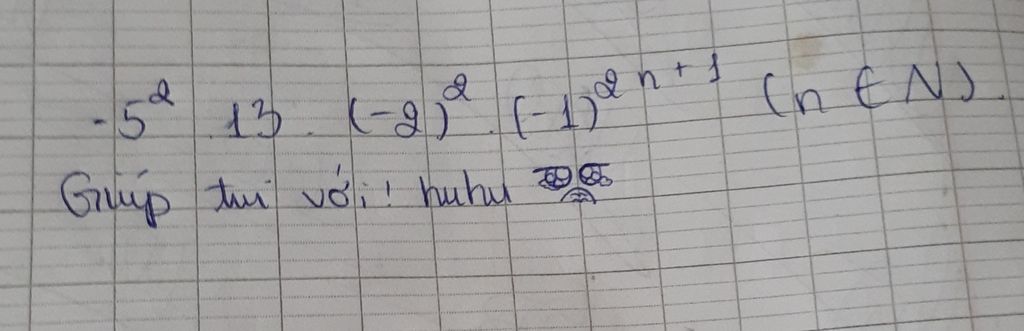 -5² . 13 . (-2)² . (-1)²ⁿ⁺¹ (n ∈ N).
Giúp tui với! huhu